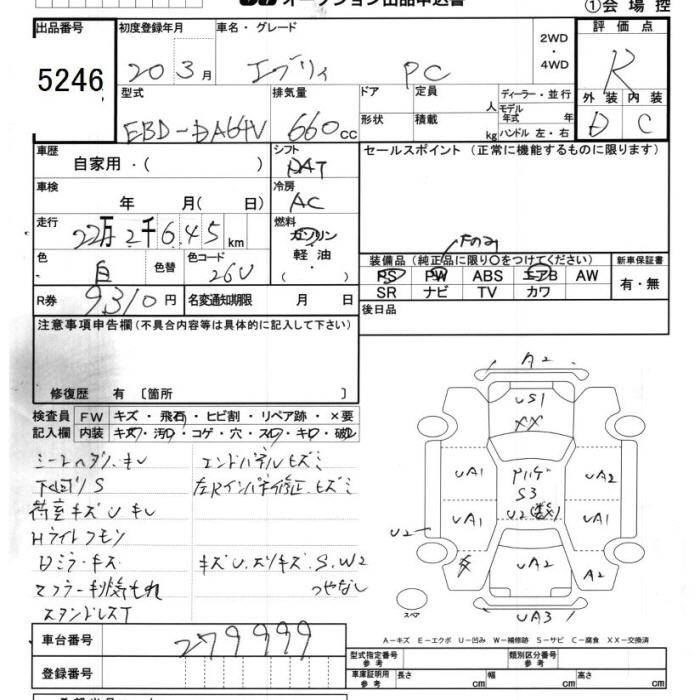 オークション出品申込書
①会場控
出品番号
5246
初度登録年月
20 3月
車名・グレード
エブリィ PC
2WD
・
4WD
評価点
R
型式
EBD-DA64V
排気量
660cc
ドア
定員
人
ディーラー・並行
モデル
年式 年
形状
積載
kg
ハンドル 左・右
外装
D
内装
C
車歴
自家用・( )
シフト
DAT
セールスポイント(正常に機能するものに限ります)
車検
年 月( 日)
冷房
AC
走行
22万2千645km
燃料
ガソリン
・
軽油
・
( )
Fのみ
色
白
色替
色コード
26U
装備品(純正品に限り○をつけてください)
PS PW ABS エアB AW
SR ナビ TV カワ
新車保証書
有・無
R券
9310円
名変通知期限 月 日
後日品
注意事項申告欄(不具合内容等は具体的に記入して下さい)
修復歴 有〔箇所 〕
検査員
記入欄
FW キズ・飛石・ヒビ割・リペア跡・×要
内装 キズ・汚れ・コゲ・穴・スレ・キレ・破レ
シートヘタリ.キレ
下回りS
荷室キズUキレ
Hライトクモリ
Dミラーキズ
マフラー排気もれ
スタンドレスT
エンドパネルヒズミ
左Rインパネ修正.ヒズミ
キズU.スリキズ.S.W2
つやなし
A2
US1
XX
UA1
UA2
S3
U2
UA1
UA1
U2
UA2
A2
UA3
スペア
A-キズ E-エクボ U-凹み W-補修跡 S-サビ C-腐食 XX-交換済
車台番号
279999
登録番号
型式指定番号
参考
類別区分番号
参考
車庫証明用
参考
長さ cm
幅 cm
高さ cm